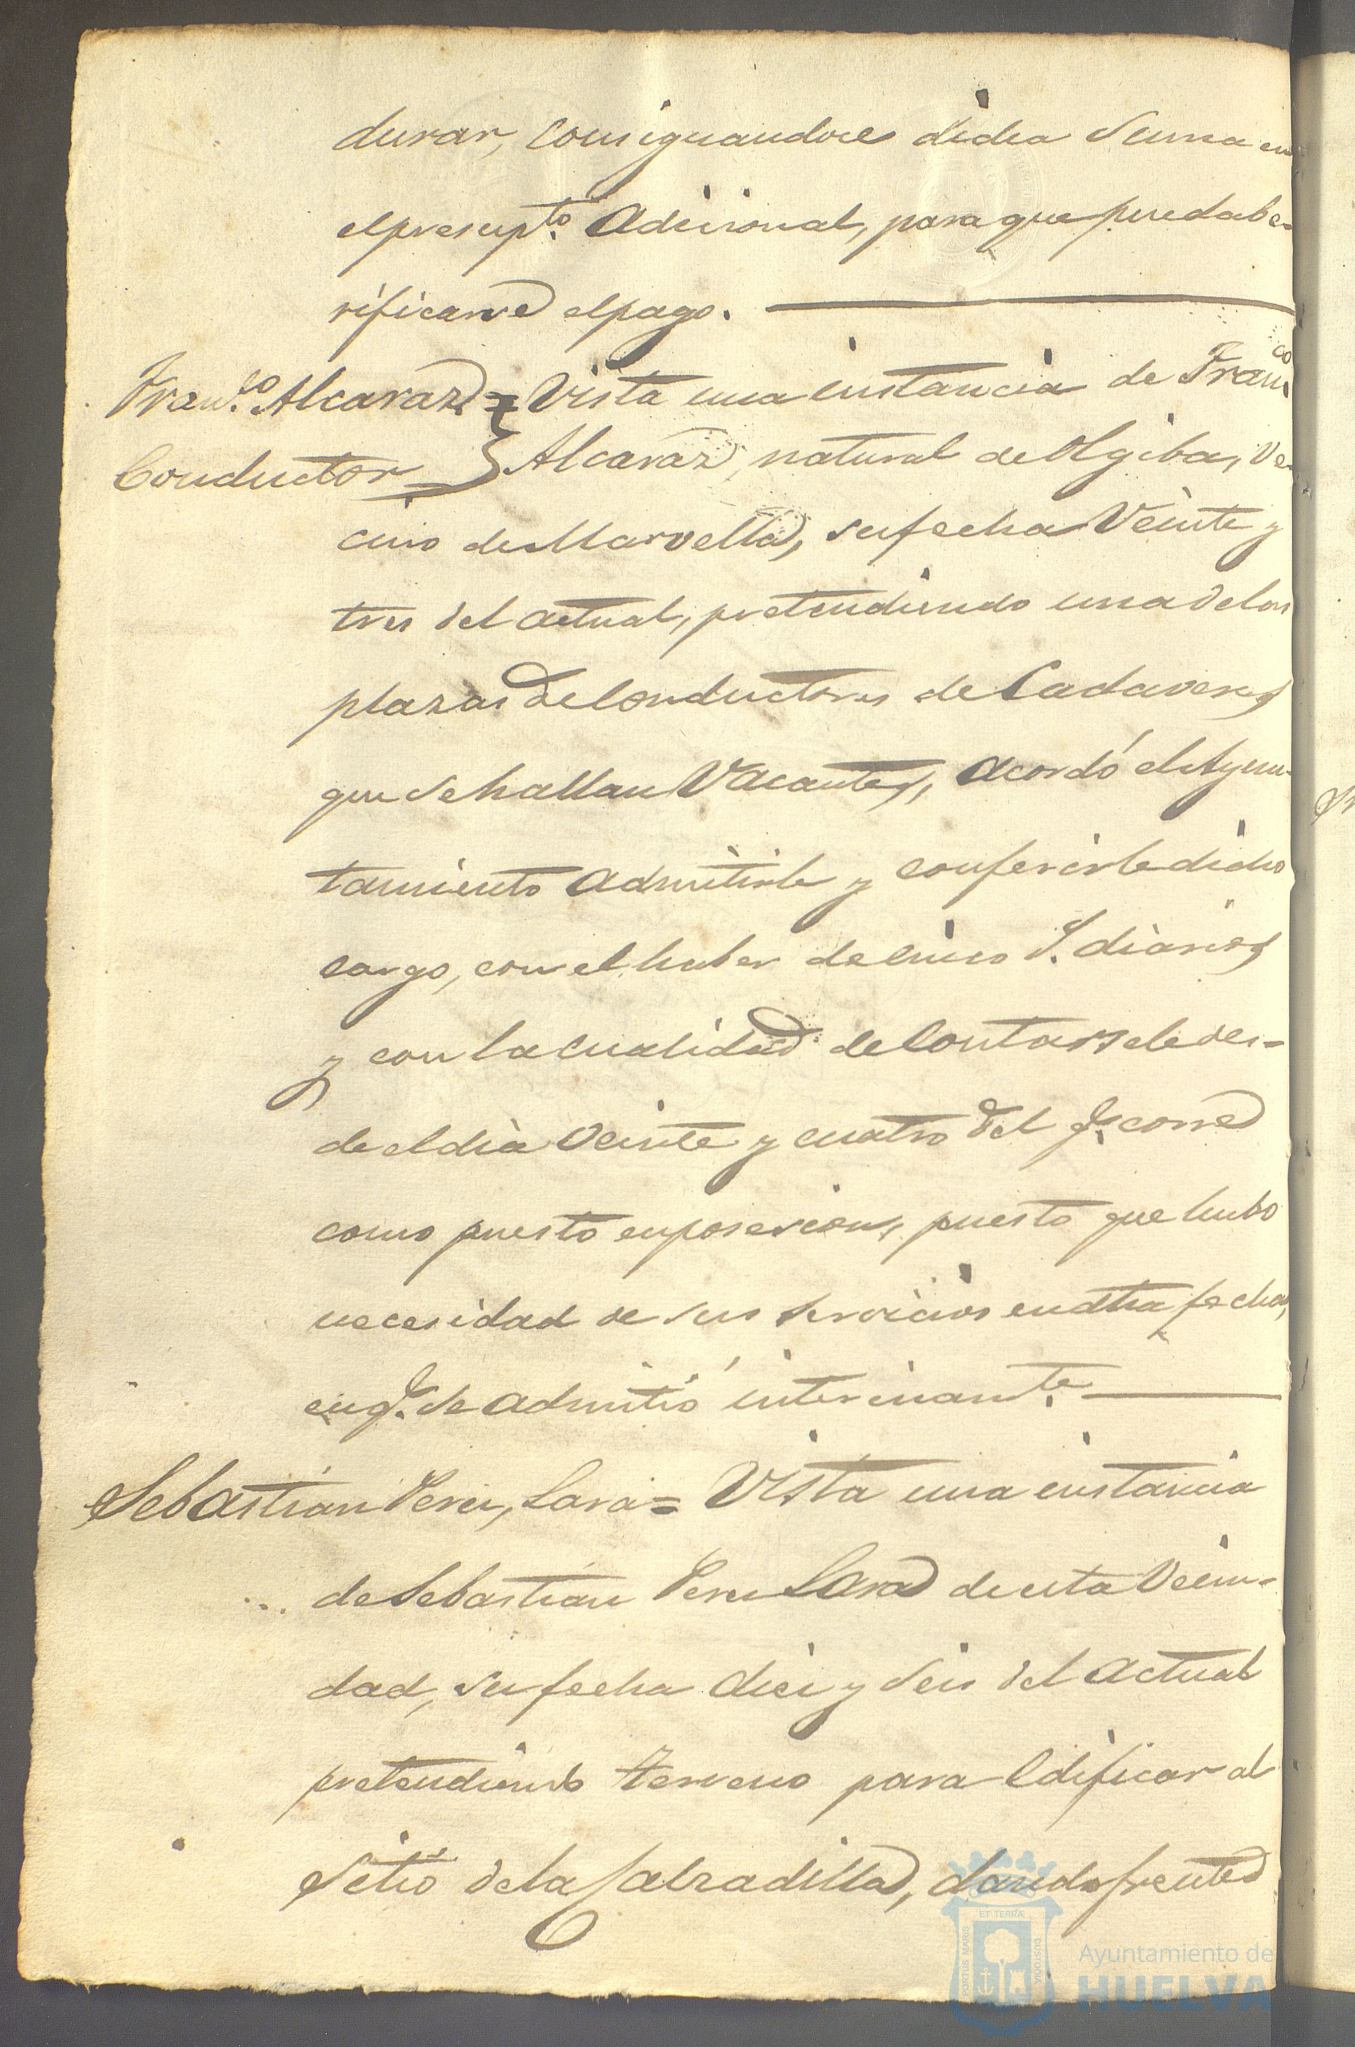 durar, consignandose dicha suma en
el presupto. Adicional, para que pueda be-
rificarse el pago.
Franco. Alcaraz = Vista una instancia de Franco.
Conductor Alcaraz, natural de Olgiba, ve-
cino de Marvella, su fecha Veinte y
tres del actual, pretendiendo una de las
plazas de Conductores de Cadaveres
que se hallan Vacantes, acordó el Ayun-
tamiento admitirle y conferirle dicho
cargo, con el haber de cinco diarios
y con la cualidad de Contarsele des-
de el dia Veinte y cuatro del qe. corre
como puesto en posesion, puesto que hubo
necesidad de sus servicios en dha fecha,
en qe. se admitió interinamte.
Sebastian Perez, Lara = Vista una instancia
de Sebastian Perez Lara de esta Vecin-
dad, su fecha diez y seis del actual
pretendiendo terreno para edificar al
Sitio de la Calzadilla, dando frente
Ayuntamiento de
HUELVA